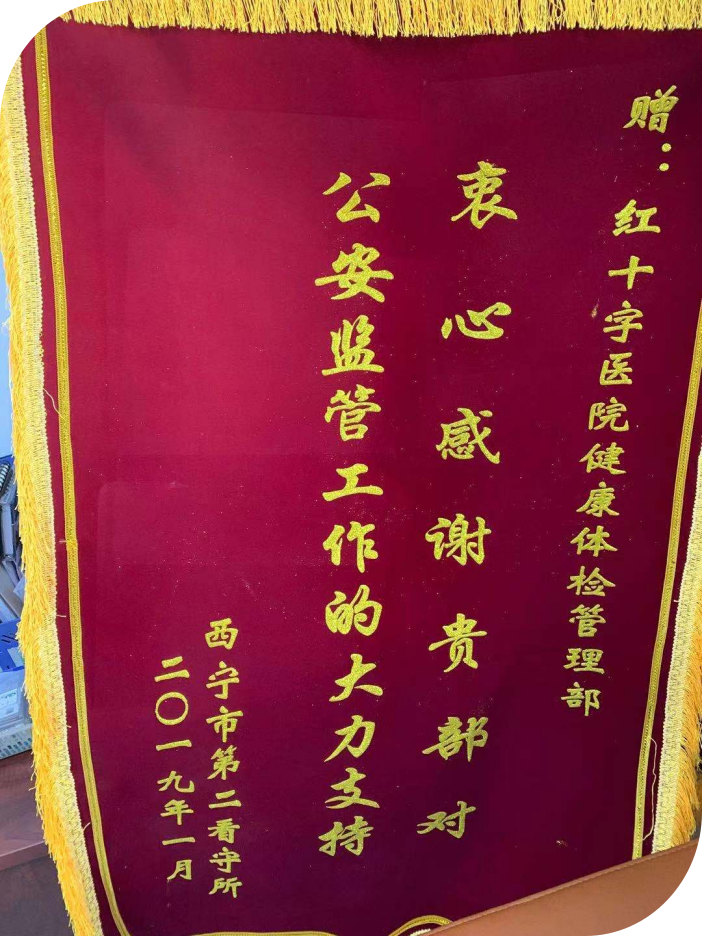 赠：红十字医院健康体检管理部
衷心感谢贵部对
公安监管工作的大力支持
西宁市第二看守所
二〇一九年一月